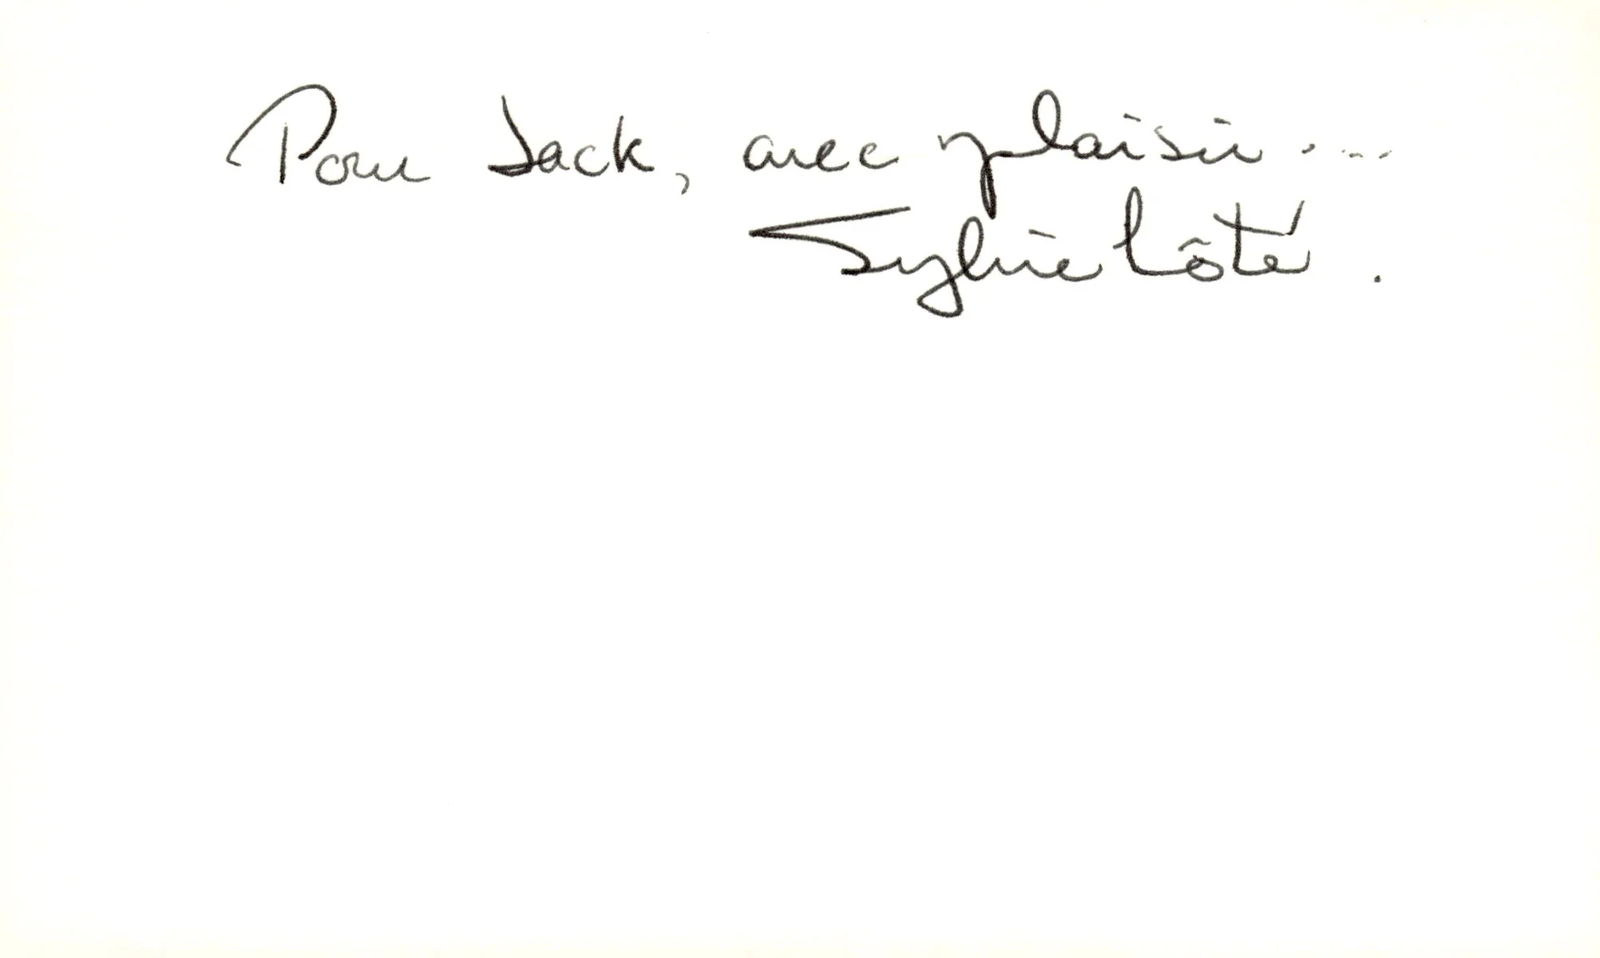 Pour Jack, avec plaisir....
Sylvie Côté.